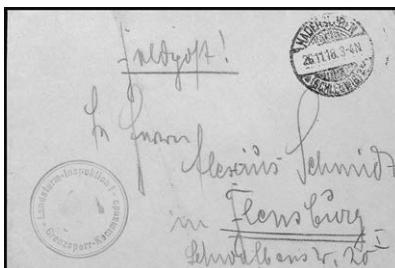 Feldpost!
HADERSLEBEN
26.11.18. 3-4N
(SCHLESWIG)
An Herrn
Alexius Schmidt
in Flensburg
Schwalbenstr. 20 I
Landsturm-Inspektion I
Grenzsperr-Kommando